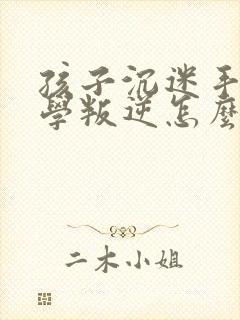 孩子沉迷手
學叛逆怎麼
二木小姐